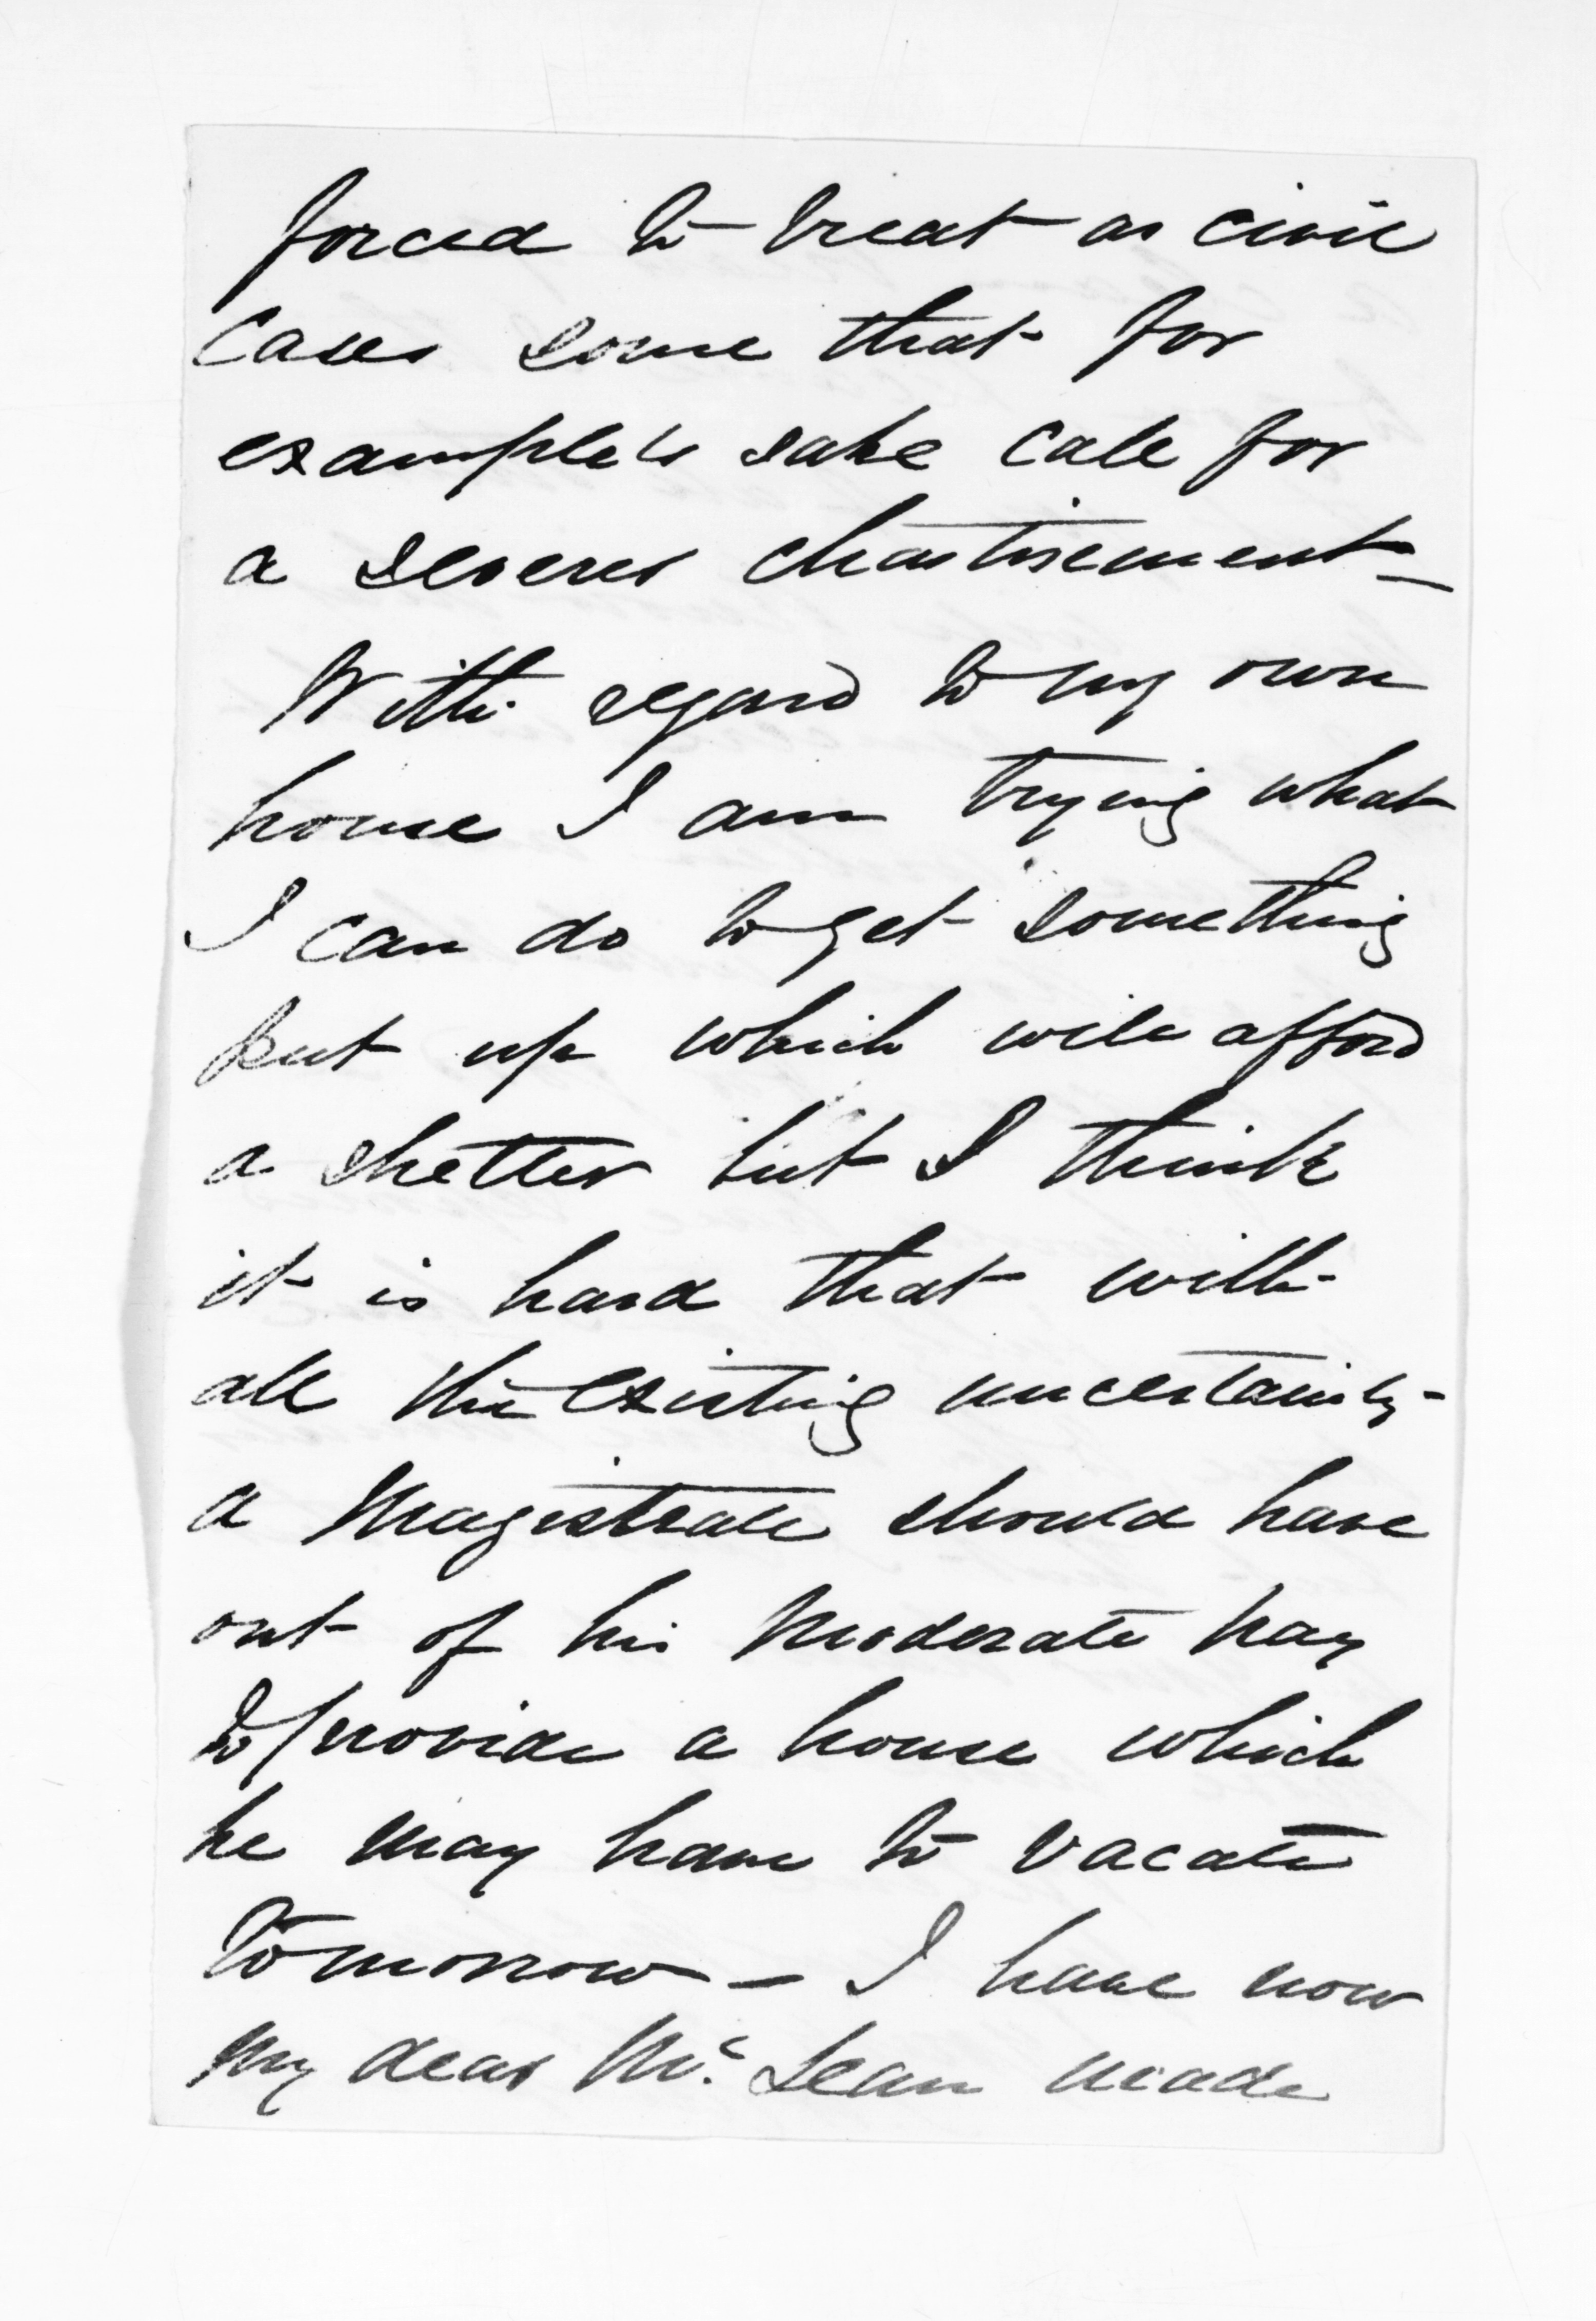 forced to treat as civil
cases some that for
example's sake call for
a severer chastisement _
With regard to my own
house I am trying what
I can do to get something
put up which will afford
a shelter but I think
it is hard that with
all the existing uncertainty -
a Magistrate should have
out of his moderate pay
to provide a house which
he may have to vacate
tomorrow _ I have now
my dear Mc Lean made